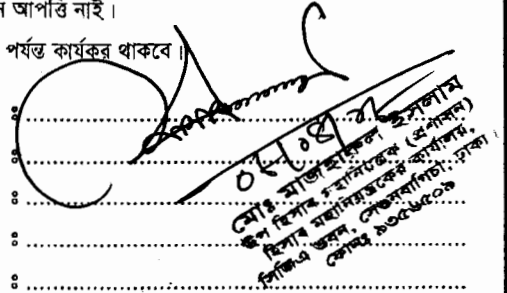 ন আপত্তি নাই।
পর্যন্ত কার্যকর থাকবে।
ঃ
ঃ
ঃ
ঃ
ঃ
মোঃ মাজাহারুল ইসলাম
উপ হিসাব মহানিয়ন্ত্রক (প্রশাসন)
হিসাব মহানিয়ন্ত্রকের কার্যালয়,
সিজিএ ভবন, সেগুনবাগিচা, ঢাকা।
ফোনঃ ৯৩৫৬৫০৯